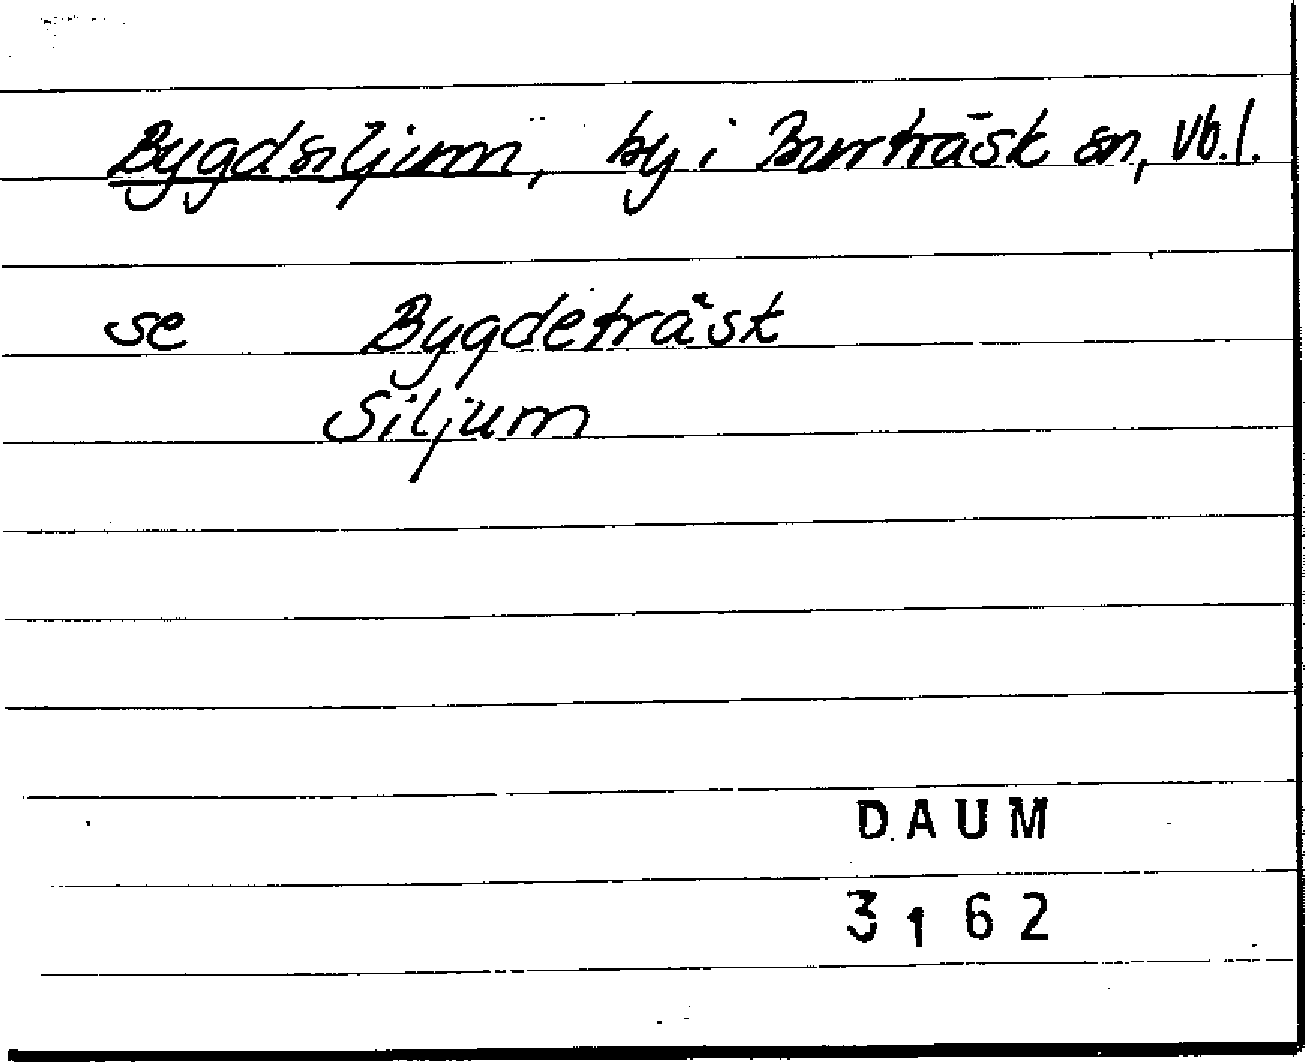 Bygdsiljum, by i Burträsk sn, Vb.l.
se Bygdeträsk
Siljum
DAUM
3162